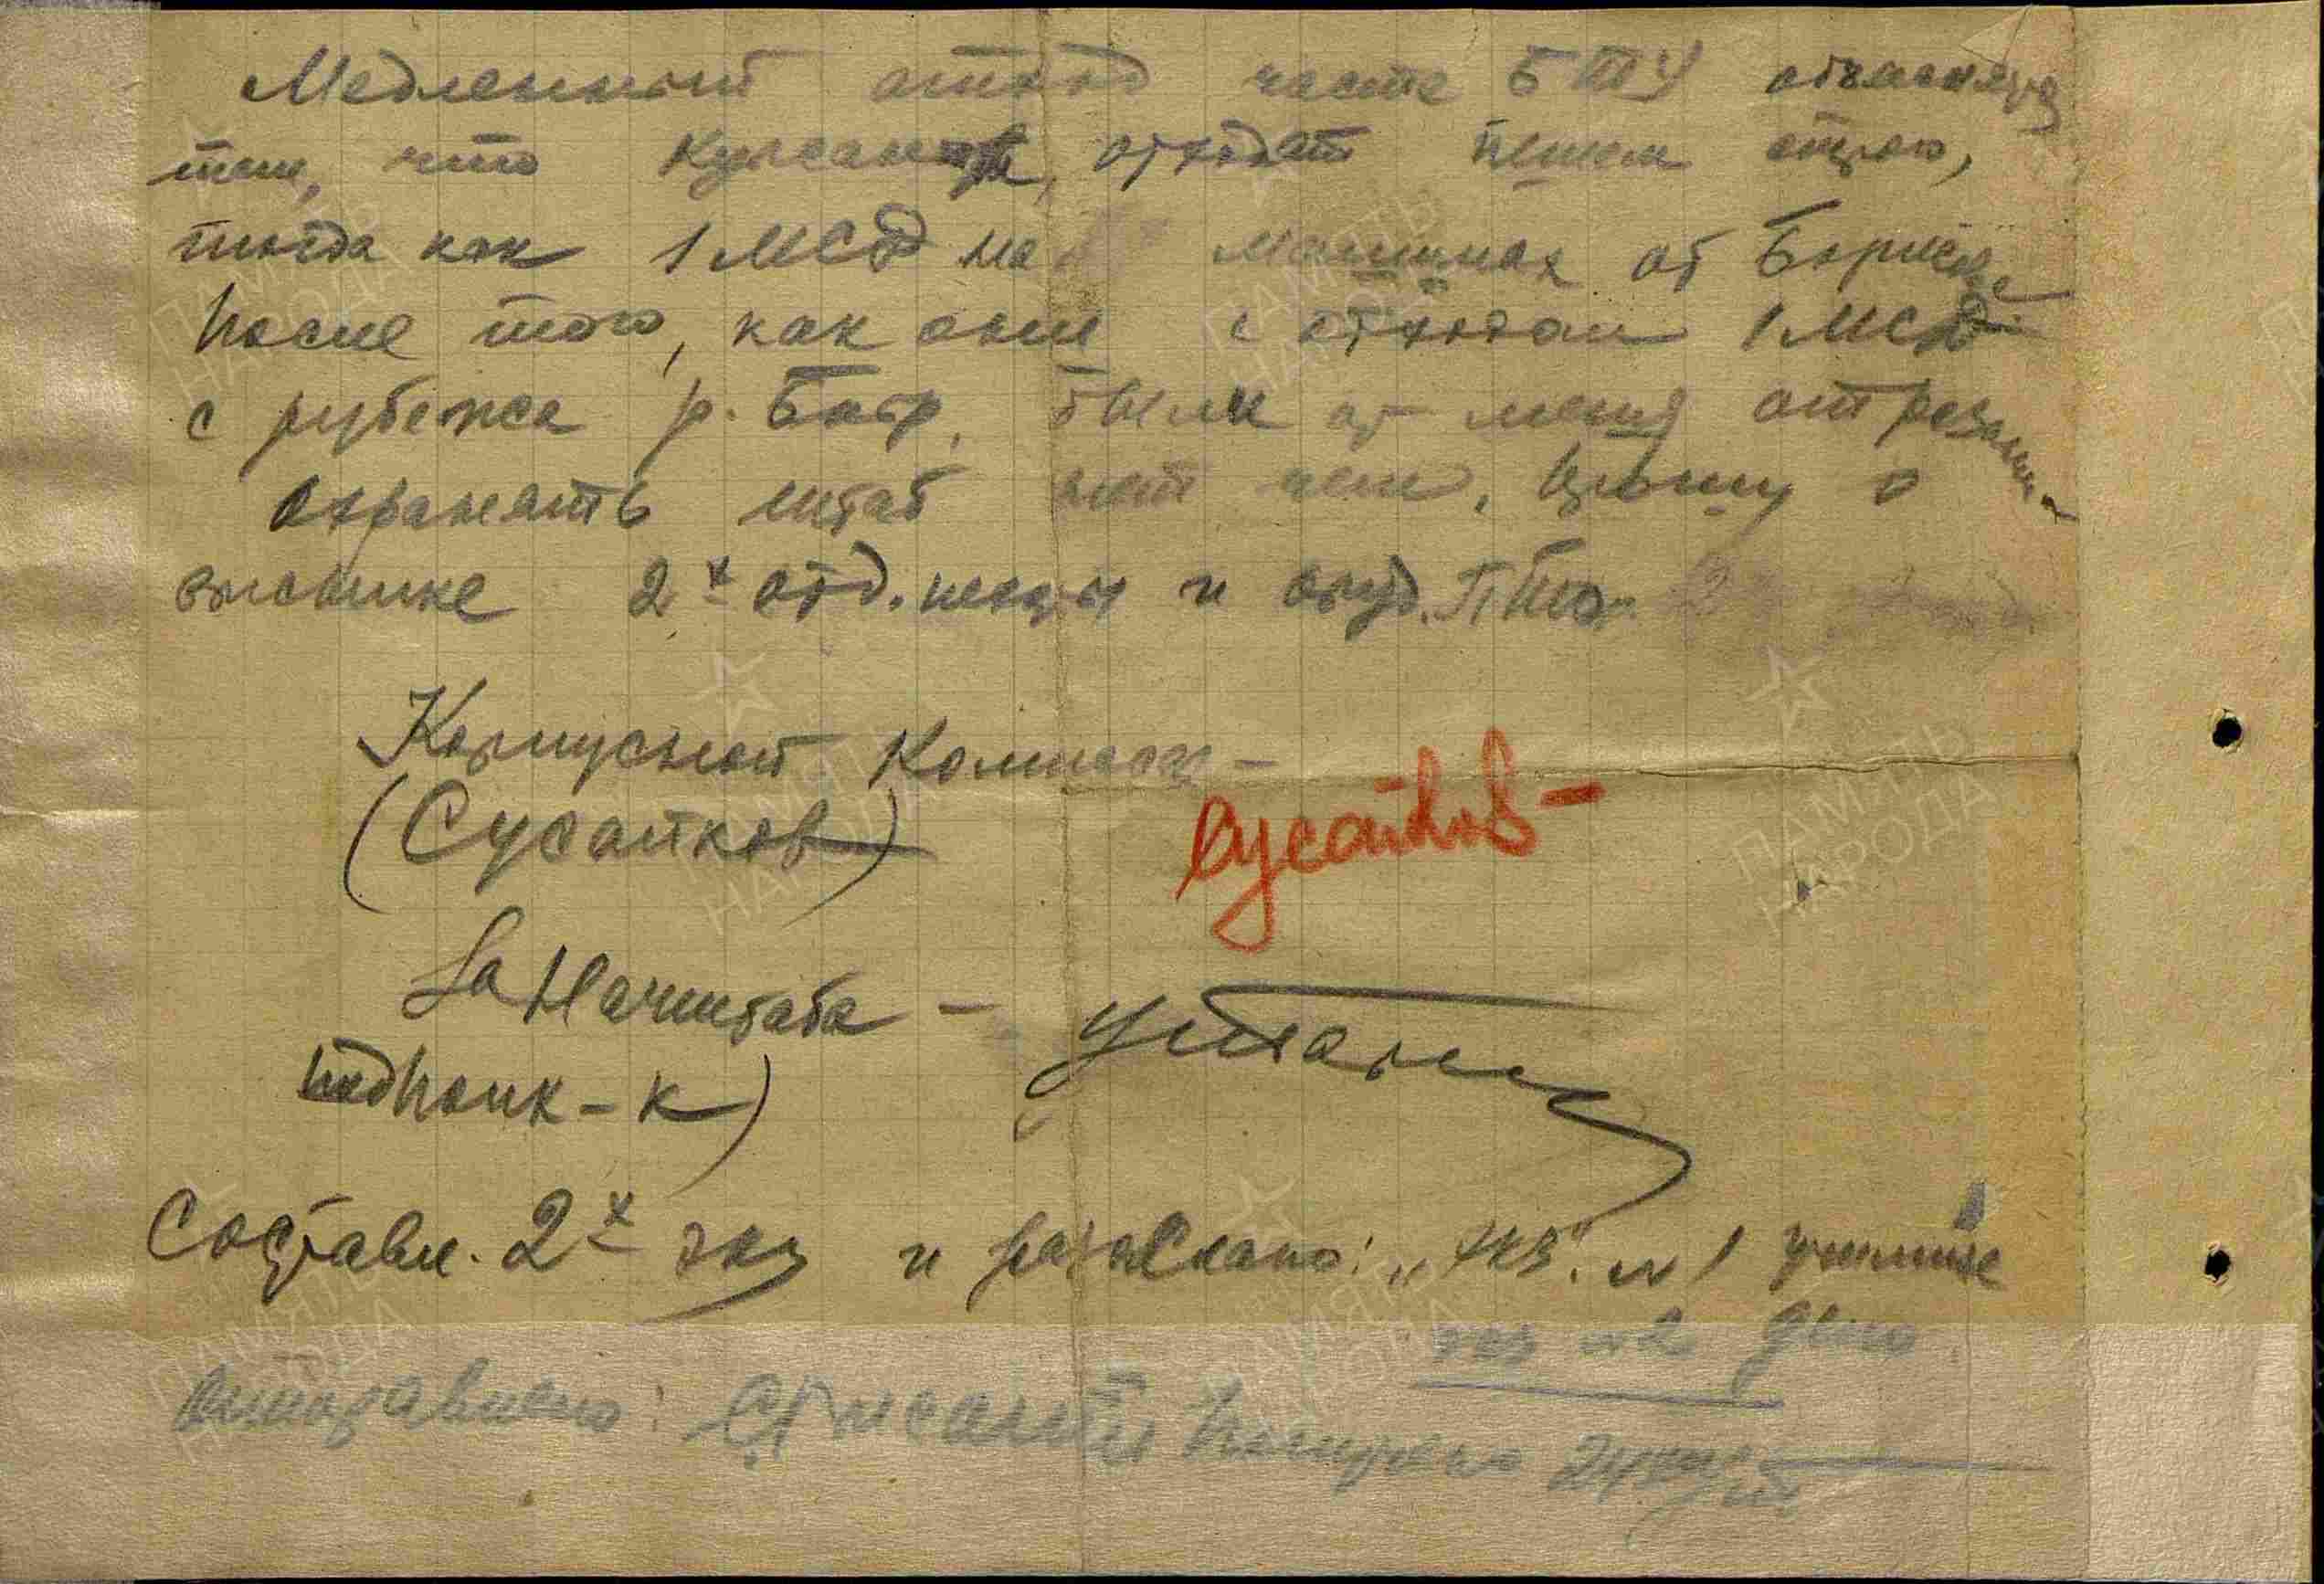 Медленный отход части БТУ объясняется
тем, что курсанты, отходят пешком
тогда как 1 МСД на машинах от Борисова
После того, как они с отходом 1 МСД
с рубежа р. Бобр, были от меня отрезаны
Охранять штаб нет чем. Прошу о
высылке 2х отд. пехоты и оруд. ПТО
Корпусной Комиссар –
(Сусайков) Сусайков –
За Начштаба –
подполк-к)
Составл. 2х экз и разослано: "экз. №1
экз №2 Дело
Отправлено: Получено
ПАМЯТЬ НАРОДА